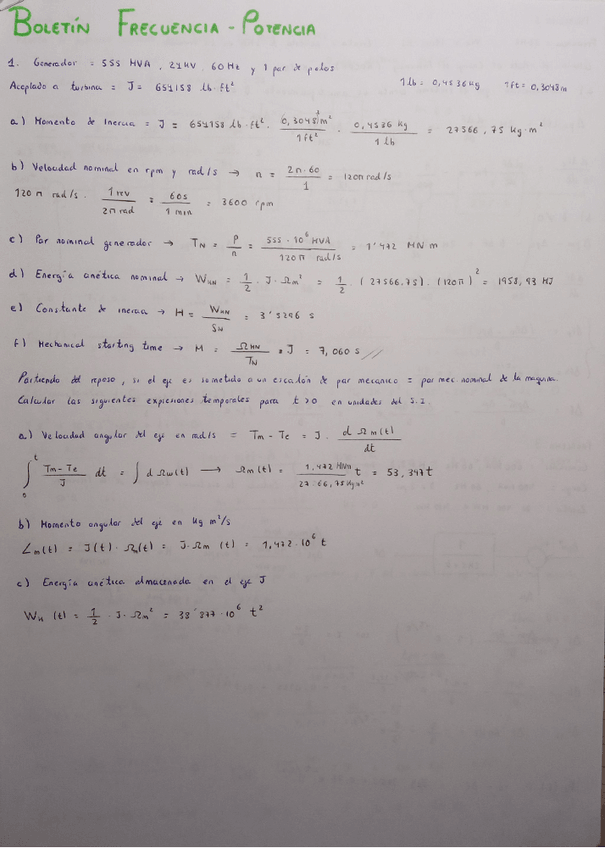 BOLETÍN FRECUENCIA - POTENCIA
1. Generador = 555 MVA, 24kV, 60Hz y 1 par de polos
Acoplado a turbina = J = 654158 lb·ft² 1lb = 0,4536kg 1ft = 0,3048m
a) Momento de inercia = J = 654158 lb·ft² · 0,3048² m² / 1ft² · 0,4536 kg / 1 lb = 27566,75 kg·m²
b) Velocidad nominal en rpm y rad/s → n = 2π·60 / 1 = 120π rad/s
120 π rad/s · 1 rev / 2π rad = 60s / 1 min = 3600 rpm
c) Par nominal generador → T_N = P / n = 555·10⁶ MVA / 120π rad/s = 1'472 MN m
d) Energía cinética nominal → W_HN = 1/2 · J · Ωm² = 1/2 · (27566,75) · (120π)² = 1958,93 MJ
e) Constante de inercia → H = W_HN / S_N = 3'5296 s
f) Mechanical starting time → M = Ω_HN / T_N · J = 7,060 s //
Partiendo del reposo, si el eje es sometido a un escalón de par mecánico = par mec. nominal de la maquina.
Calcular las siguientes expresiones temporales para t>0 en unidades del S.I.
a) Velocidad angular del eje en rad/s = Tm - Te = J · dΩm(t) / dt
∫₀ᵗ Tm-Te / J dt = ∫ dΩm(t) → Ωm(t) = 1,472 MNm / 27566,75 kg m² t = 53,397t
b) Momento angular del eje en kg m²/s
Lm(t) = J(t) · Ωm(t) = J · Ωm (t) = 1,472·10⁶ t
c) Energía cinética almacenada en el eje J
W_H (t) = 1/2 · J · Ωm² = 38'877·10⁶ t²